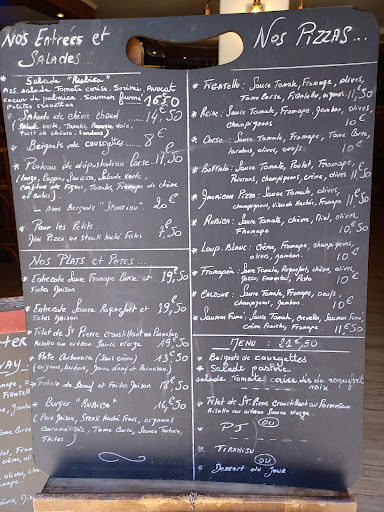 Nos Entrées et
Salades...
* Salade "Rubica"
Ass. salade Tomate cerise. Surimi. Avocat
coeur de palmier. Saumon fumé 16€50
Petites crevettes
* Salade de Chèvre chaud...... 14€50
(Salade verte, Tomate,
* Beignets de courgettes...... 8€
* Planteau de dégustation Corse. 17€50
(Lonzo, Coppa, Saucisse, Salade verte
confiture de Figues, Tomates, Fromage de chèvre
et Brebis)
20€
* Pour les Petits :
Mini Pizza ou steak haché Frites 7€50
Nos Plats et Pâtes...
* Entrecôte Sauce Fromage Corse et 19€50
Frites Maison
* Entrecôte Sauce Roquefort et 19€50
Frites Maison
* Filet de St Pierre Croustillant au Parmesan
Risotto au citron Sauce Vierge 19€50
* Pâte Carbonara (sans crème) 13€50
(oignons, lardons, jaune d'oeuf et Parmesan)
* Tartare de boeuf et Frites Maison 18€50
* Burger "Rubica" 16€50
(Pain Maison, Steak Haché Frais, oignons
caramélisés, Tome Corse, Sauce Tartare,
Frites)
Nos Pizzas...
* Figatellu : Sauce Tomate, Fromage, olives,
Tome Corse, Figatellu, oignons. 11€50
* Reine : Sauce Tomate, Fromage, Jambon, olives,
champignons 10€
* Corse : Sauce Tomate, Fromage, Tome Corse,
lardons, olives, oeufs. 10€
* Buffalo : Sauce Tomate, Poulet, Fromage,
Poivrons, champignons, crème, olives 11€50
* American Pizza : Sauce Tomate, olives,
champignons, Viande Hachée, Fromage 11€50
* Rubica : Sauce Tomate, chèvre, Miel, olives,
Fromage 10€50
* Loup Blanc : Crème, Fromage, champignons,
olives, jambon. 10€
* Fromagère : Sauce Tomate, Roquefort, chèvre, olives,
10€
* Calzone : Sauce Tomate, Fromage, oeufs,
champignons, Jambon 10€
* Saumon Fumé : Sauce Tomate, Crevettes, Saumon Fumé,
crème Fraîche, Fromage 11€50
Menu : 21€50
* Beignets de courgettes
* Salade pastore
salade Tomate cerise dés de roquefort
noix
* Filet de St. Pierre Croustillant au Parmesan
Risotto au citron Sauce Vierge
OU
- PJ
* Tiramisu
OU
* Dessert du Jour